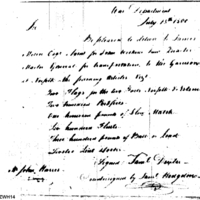 War Department
July 15th 1800
Sir
Be pleased to deliver to James
Miller Esqr Agent for Quarter
Master General for transportation to the Garrison
at Norfolk the following Articles Viz
Two Flags for the two Forts Norfolk & Nelson
Two hundred
One hundred pounds of Slow Match
Two hundred Flints
Three hundred pounds of Ball or Lead
Signed Saml Dexter
Countersigned by Saml Hodgdon
Mr John Harris
EWH14